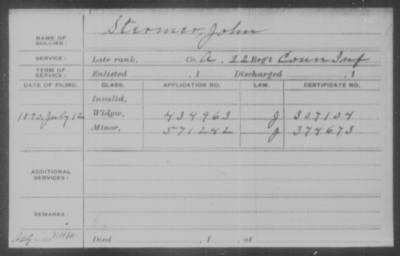 Stermer, John
NAME OF SOLDIER:
SERVICE: Late rank, Co. A, 22 Reg't Conn Inf
TERM OF SERVICE: Enlisted , 1 Discharged , 1
DATE OF FILING: CLASS. APPLICATION NO. LAW. CERTIFICATE NO.
Invalid,
1890 July 12 Widow, 434963 J 307104
Minor, 571242 J 374673
ADDITIONAL SERVICES:
REMARKS:
Died , 1 , at